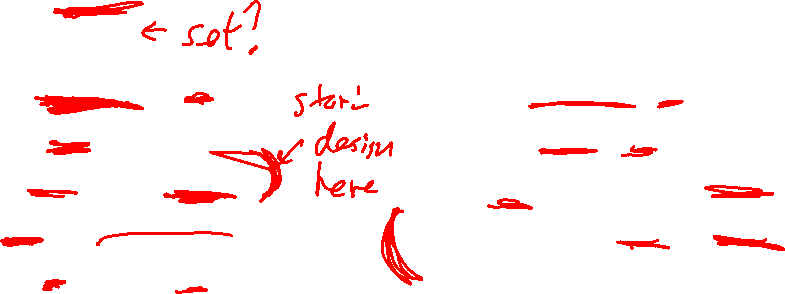 ← set?
start
design
here